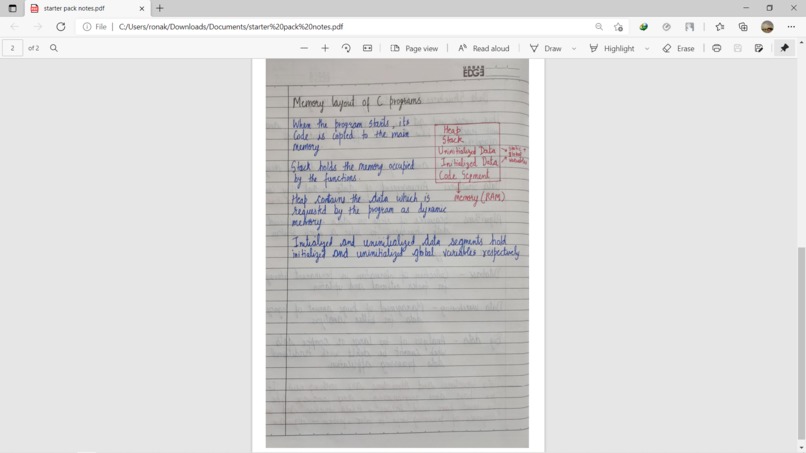 starter pack notes.pdf
File
C:/Users/ronak/Downloads/Documents/starter%20pack%20notes.pdf
2 of 2
Page view
Read aloud
Draw
Highlight
Erase
EDGE
Memory layout of C programs
When the program starts, its
code is copied to the main
memory
Stack holds the memory occupied
by the functions.
Heap contains the data which is
requested by the program as dynamic
memory.
Initialized and uninitialized data segments hold
initialized and uninitialized global variables respectively
Heap
Stack
Uninitialized Data
Initialized Data
Code Segment
Memory (RAM)